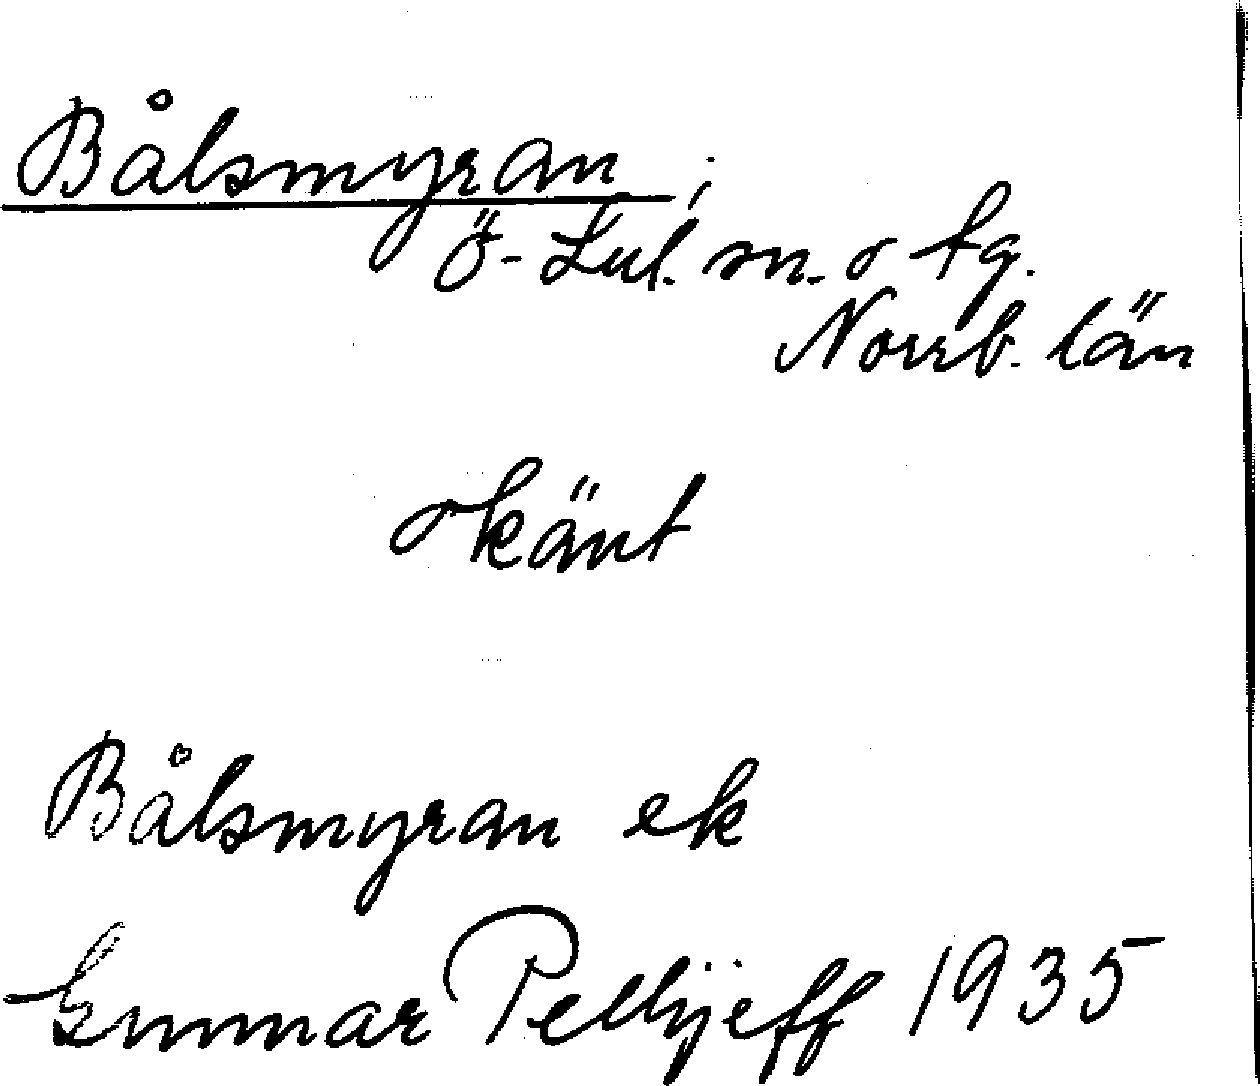 Bålsmyran ;
Ö-Lul. sn. o tg.
Norrb. län
okänt
Bålsmyran ek
Gunnar Pellijeff 1935